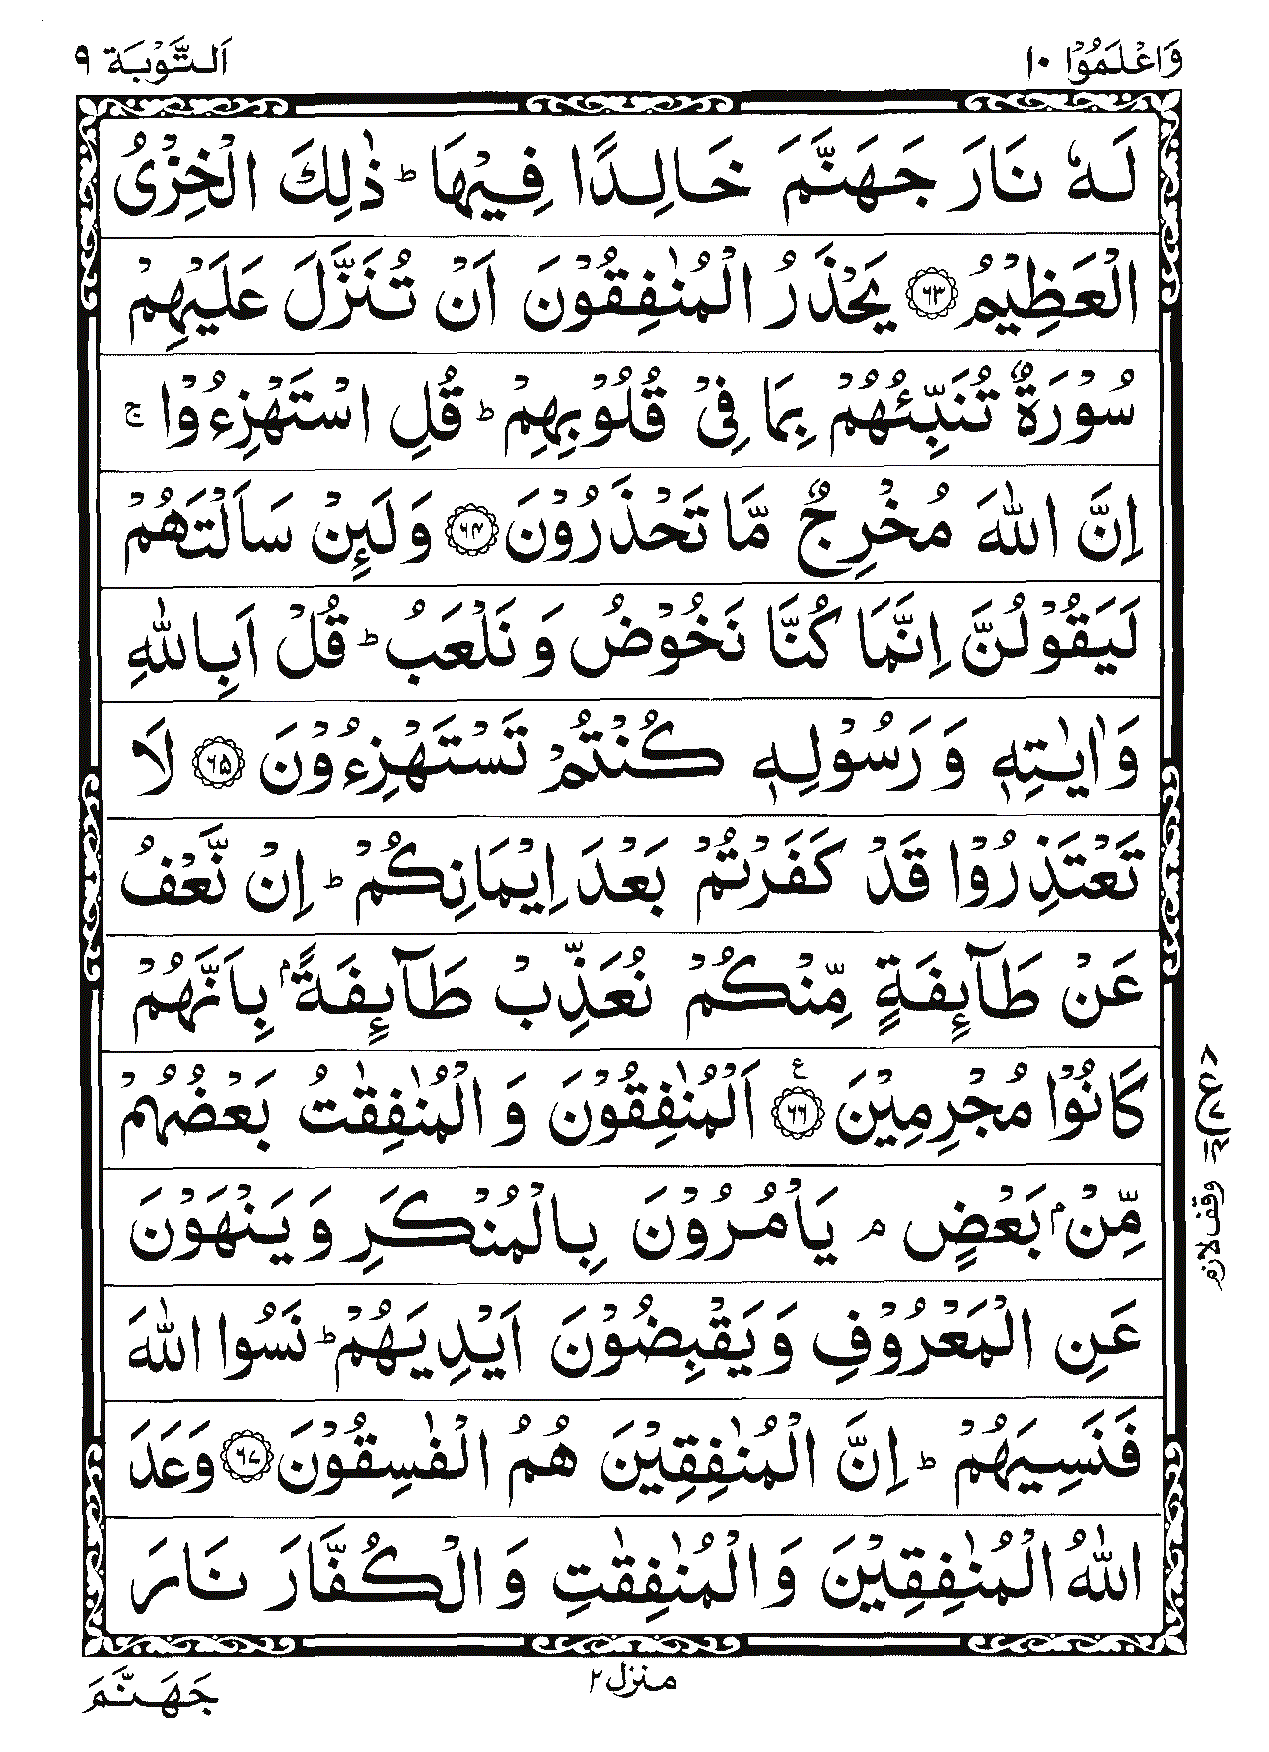 وَاعْلَمُوْۤا ١٠ اَلتَّوْبَة ٩
لَهٗ نَارَ جَهَنَّمَ خَالِدًا فِيْهَا ؕ ذٰلِكَ الْخِزْىُ
الْعَظِيْمُ ﴿۶۳﴾ يَحْذَرُ الْمُنٰفِقُوْنَ اَنْ تُنَزَّلَ عَلَيْهِمْ
سُوْرَةٌ تُنَبِّئُهُمْ بِمَا فِىْ قُلُوْبِهِمْ ؕ قُلِ اسْتَهْزِءُوْا ۚ
اِنَّ اللّٰهَ مُخْرِجٌ مَّا تَحْذَرُوْنَ ﴿۶۴﴾ وَلَئِنْ سَاَلْتَهُمْ
لَيَقُوْلُنَّ اِنَّمَا كُنَّا نَخُوْضُ وَ نَلْعَبُ ؕ قُلْ اَبِاللّٰهِ
وَاٰيٰتِهٖ وَ رَسُوْلِهٖ كُنْتُمْ تَسْتَهْزِءُوْنَ ﴿۶۵﴾ لَا
تَعْتَذِرُوْا قَدْ كَفَرْتُمْ بَعْدَ اِيْمَانِكُمْ ؕ اِنْ نَّعْفُ
عَنْ طَآئِفَةٍ مِّنْكُمْ نُعَذِّبْ طَآئِفَةًۢ بِاَنَّهُمْ
كَانُوْا مُجْرِمِيْنَ ﴿۶۶﴾ ع اَلْمُنٰفِقُوْنَ وَ الْمُنٰفِقٰتُ بَعْضُهُمْ
مِّنْۢ بَعْضٍ ۘ يَاْمُرُوْنَ بِالْمُنْكَرِ وَ يَنْهَوْنَ
عَنِ الْمَعْرُوْفِ وَ يَقْبِضُوْنَ اَيْدِيَهُمْ ؕ نَسُوا اللّٰهَ
فَنَسِيَهُمْ ؕ اِنَّ الْمُنٰفِقِيْنَ هُمُ الْفٰسِقُوْنَ ﴿۶۷﴾ وَعَدَ
اللّٰهُ الْمُنٰفِقِيْنَ وَ الْمُنٰفِقٰتِ وَ الْكُفَّارَ نَارَ
وقف لازم
منزل ٢
جَهَنَّمَ